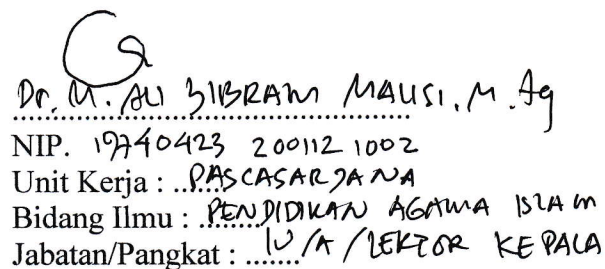 Dr. M. ALI SIBRAM MALISI, M.Ag
NIP. 19740423 200112 1002
Unit Kerja : PASCASARJANA
Bidang Ilmu : PENDIDIKAN AGAMA ISLAM
Jabatan/Pangkat : IV/A / LEKTOR KEPALA